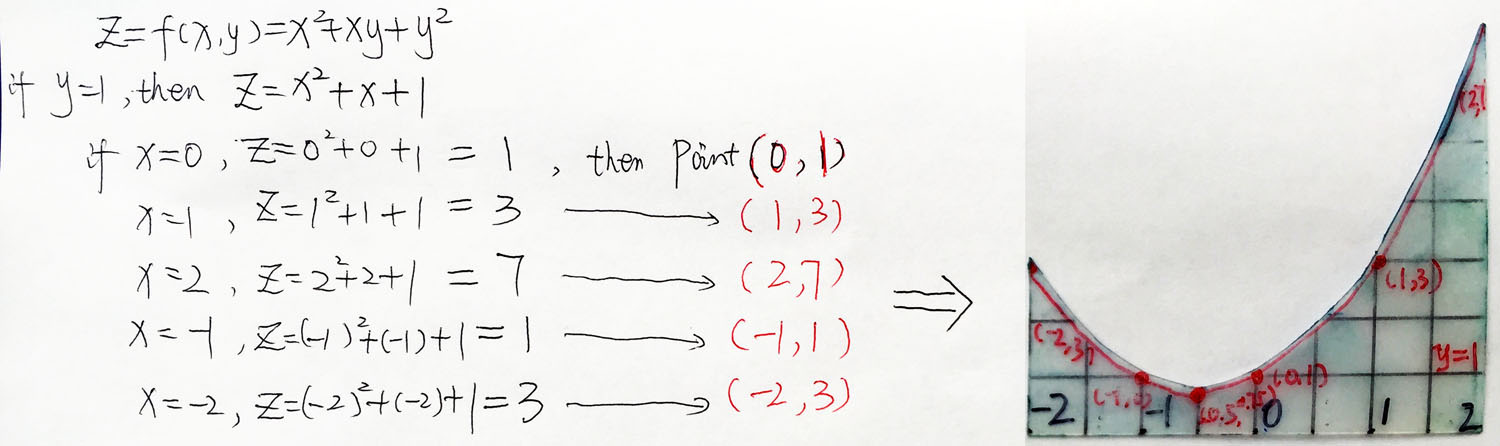 Z=f(x,y)=x²+xy+y²
if y=1, then Z=x²+x+1
if x=0, Z=0²+0+1 = 1, then Point (0,1)
x=1, Z=1²+1+1 = 3 → (1,3)
x=2, Z=2²+2+1 = 7 → (2,7) ⇒
x=-1, Z=(-1)²+(-1)+1=1 → (-1,1)
x=-2, Z=(-2)²+(-2)+1=3 → (-2,3)
(2,7
(1,3)
(-2,3)
y=1
(0,1)
-2 -1 0 1 2